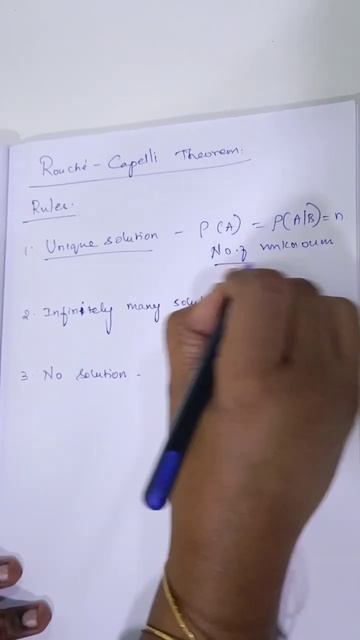 Rouché - Capelli Theorem:
Rules:
1. Unique solution - ρ(A) = ρ(A|B) = n
No. of unknowns
2. Infinitely many
3. No solution -